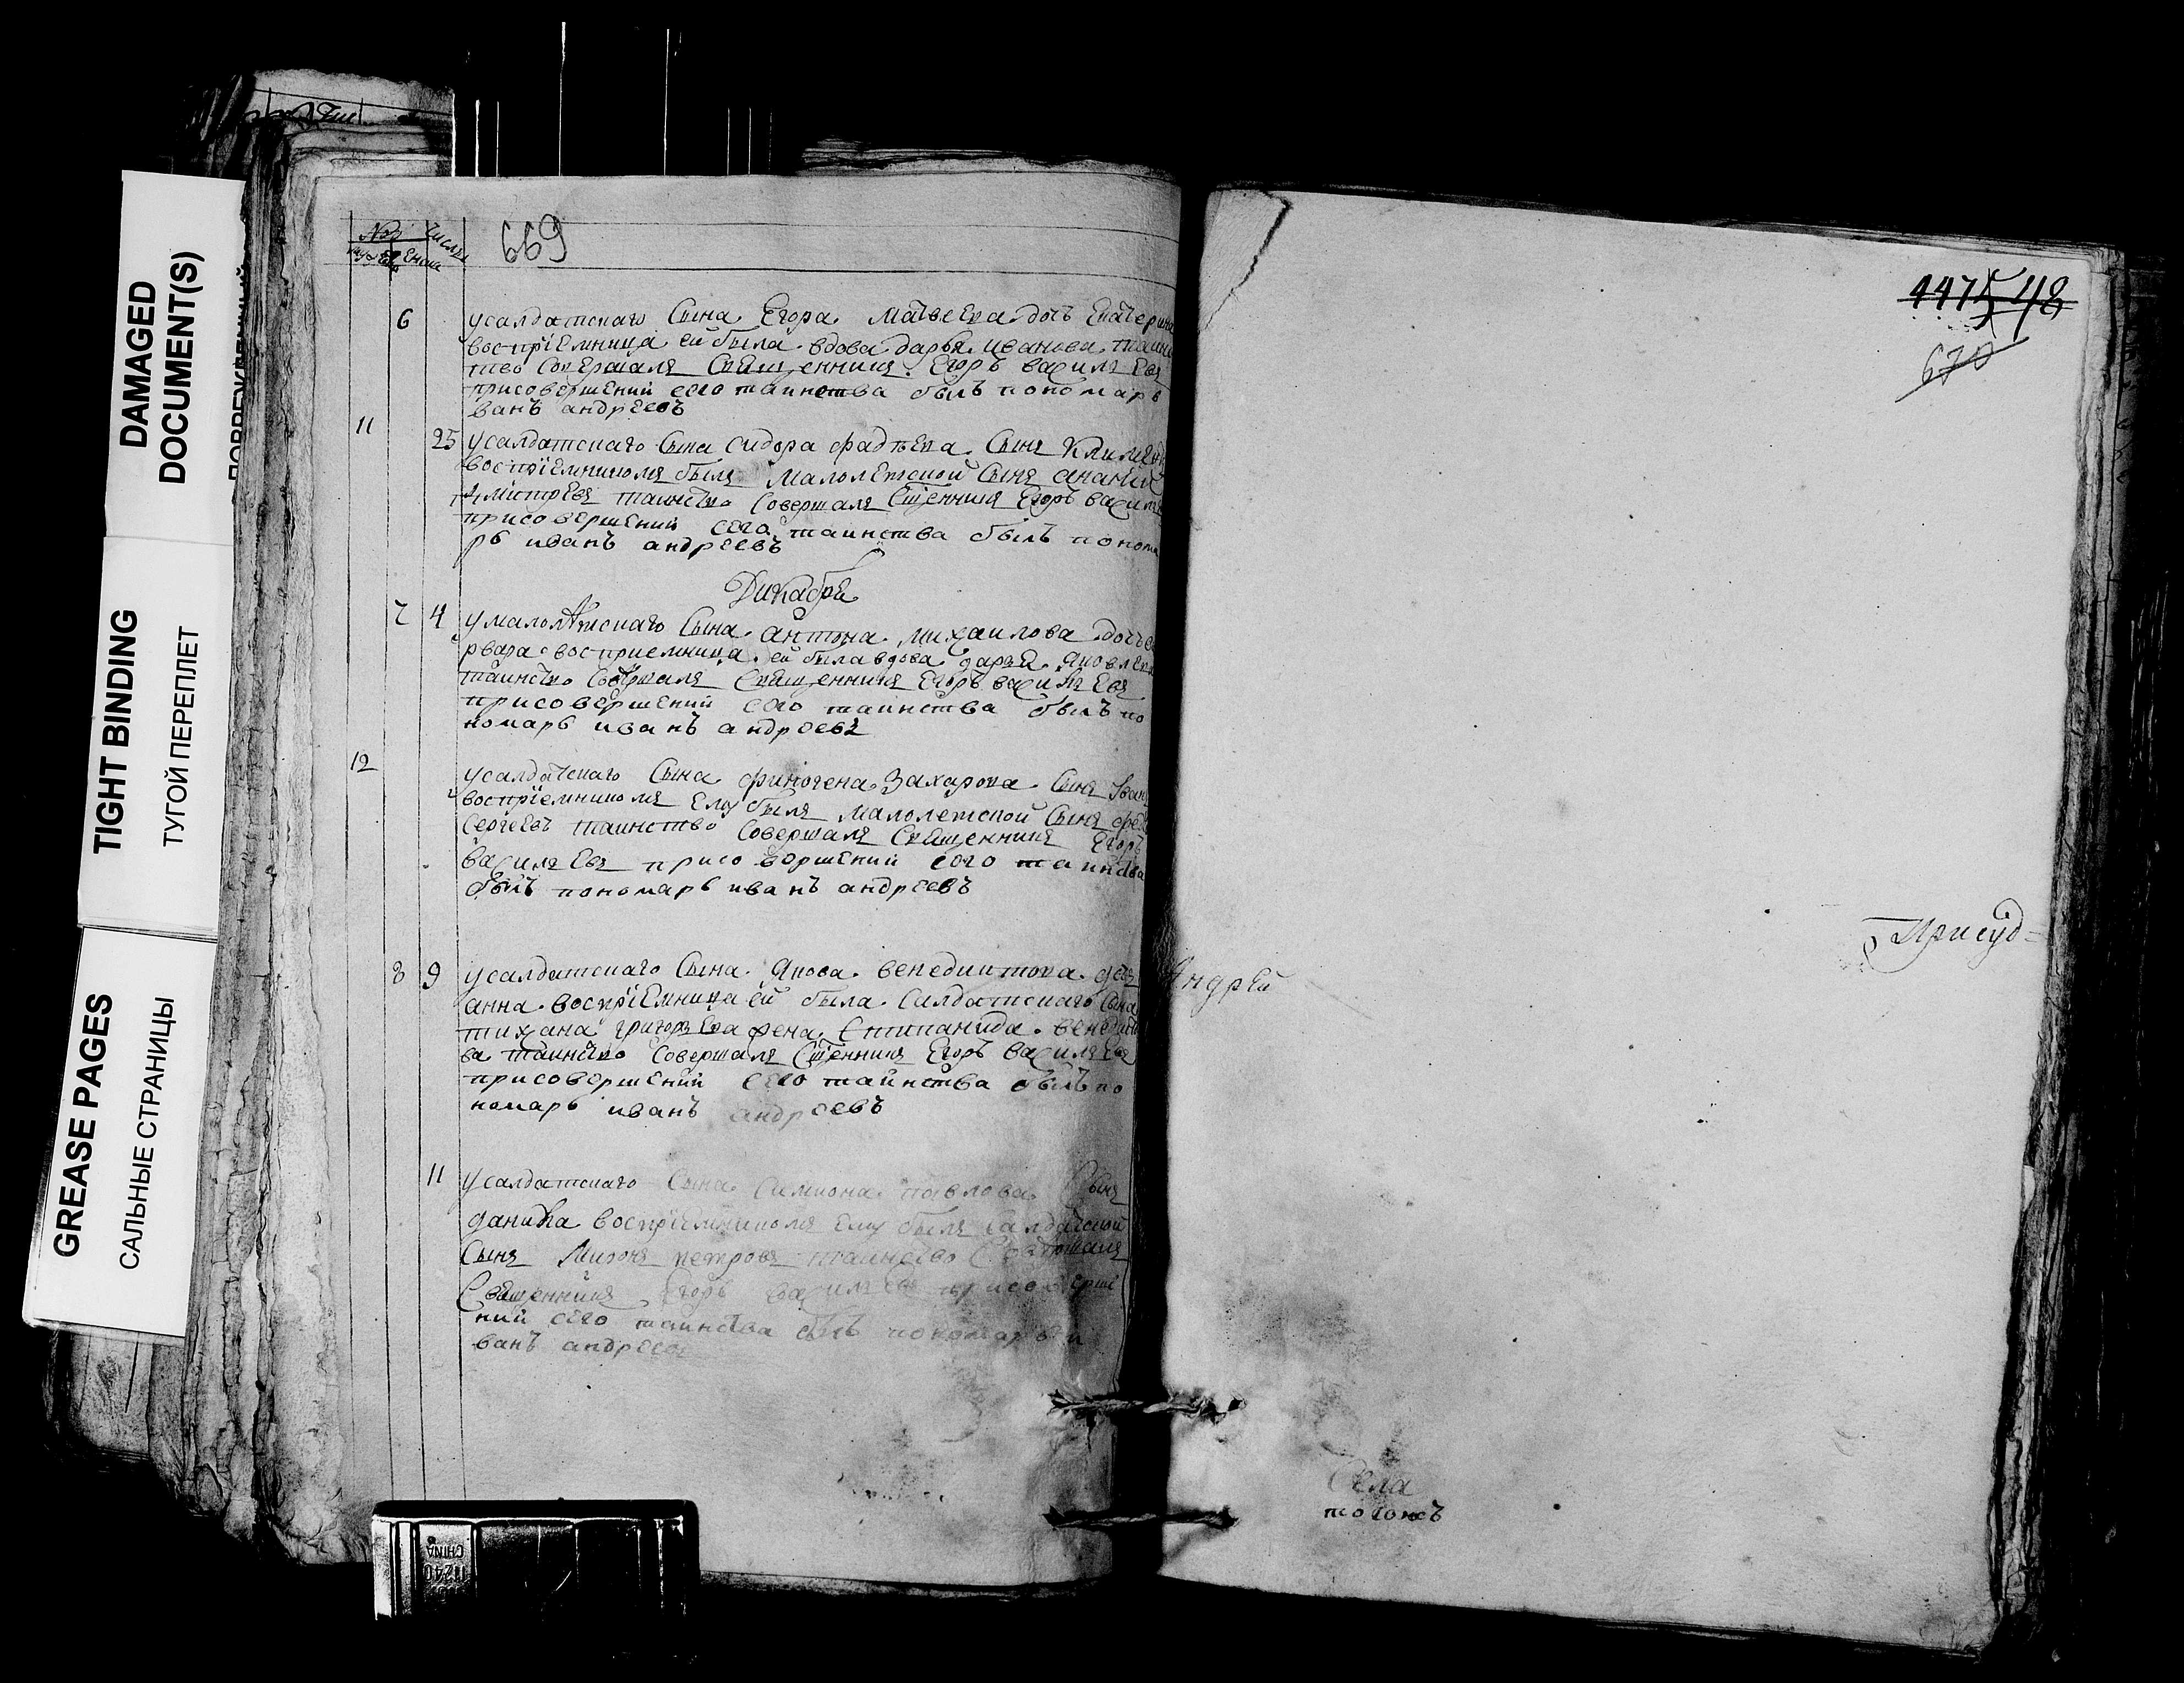 DAMAGED
DOCUMENT(S)
TIGHT BINDING
ТУГОЙ ПЕРЕПЛЕТ
GREASE PAGES
САЛЬНЫЕ СТРАНИЦЫ
669
6 усалдатскаго Сына Егора Матвеева дочь Екатерина
воспрїемница ей была вдова дарья иванова
тво Совершалъ Священникъ Егоръ василЬевъ
присовершений сего таинства былъ пономарь
ванъ андреевъ
11 25 усалдатскаго Сына сидора фадѣева Сынъ
воспрїемникомъ былъ Малолетской Сынъ ананий
дмитревъ таинство Совершалъ Сщенникъ Егоръ
присовершений сего таинства былъ понома
рь иванъ андреевъ
Дикабри
7 4 умалолѣтскаго Сына антона михаилова дочь
рвара восприемница ей была вдова дарья
таинство Совершалъ Священникъ Егоръ василЬевъ
присовершений сего таинства былъ по
номарь иванъ андреевъ
12
усалдатскаго Сына финогена Захарова Сынъ
воспрїемникомъ Ему былъ малолетской Сынъ
Сергеевъ таинство Совершалъ Священникъ Егоръ
василЬевъ присовершений сего таинства
былъ пономарь иванъ андреевъ
8 9 усалдатскаго Сына Якова венедиктова
анна воспрїемница ей была Салдатскаго Сына
тихана григорЬева жена Епипанида
ва таинство Совершалъ Сщенникъ Егоръ василЬевъ
присовершений сего таинства былъ по
номарь иванъ андреевъ
11 усалдатскаго Сына Симиона павлова Сынъ
данила воспрїемникомъ Ему былъ Салдатской
Сынъ Миронъ петровъ таинство Совершалъ
Священникъ Егоръ василЬевъ присоверше
ний сего таинства былъ пономарь и
ванъ андреевъ
670
Присуд=
Андрей
Села